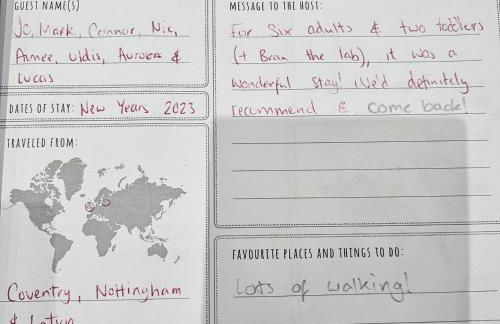 GUEST NAME(S)
Jo, Mark, Connor, Nic,
Aimee, Uldis, Aurora &
Lucas
DATES OF STAY: New Years 2023
TRAVELED FROM:
Coventry, Nottingham
& Latvia
MESSAGE TO THE HOST:
For Six adults & two toddlers
(+ Bran the lab), it was a
wonderful stay! We'd definitely
recommend & come back!
FAVOURITE PLACES AND THINGS TO DO:
Lots of walking!